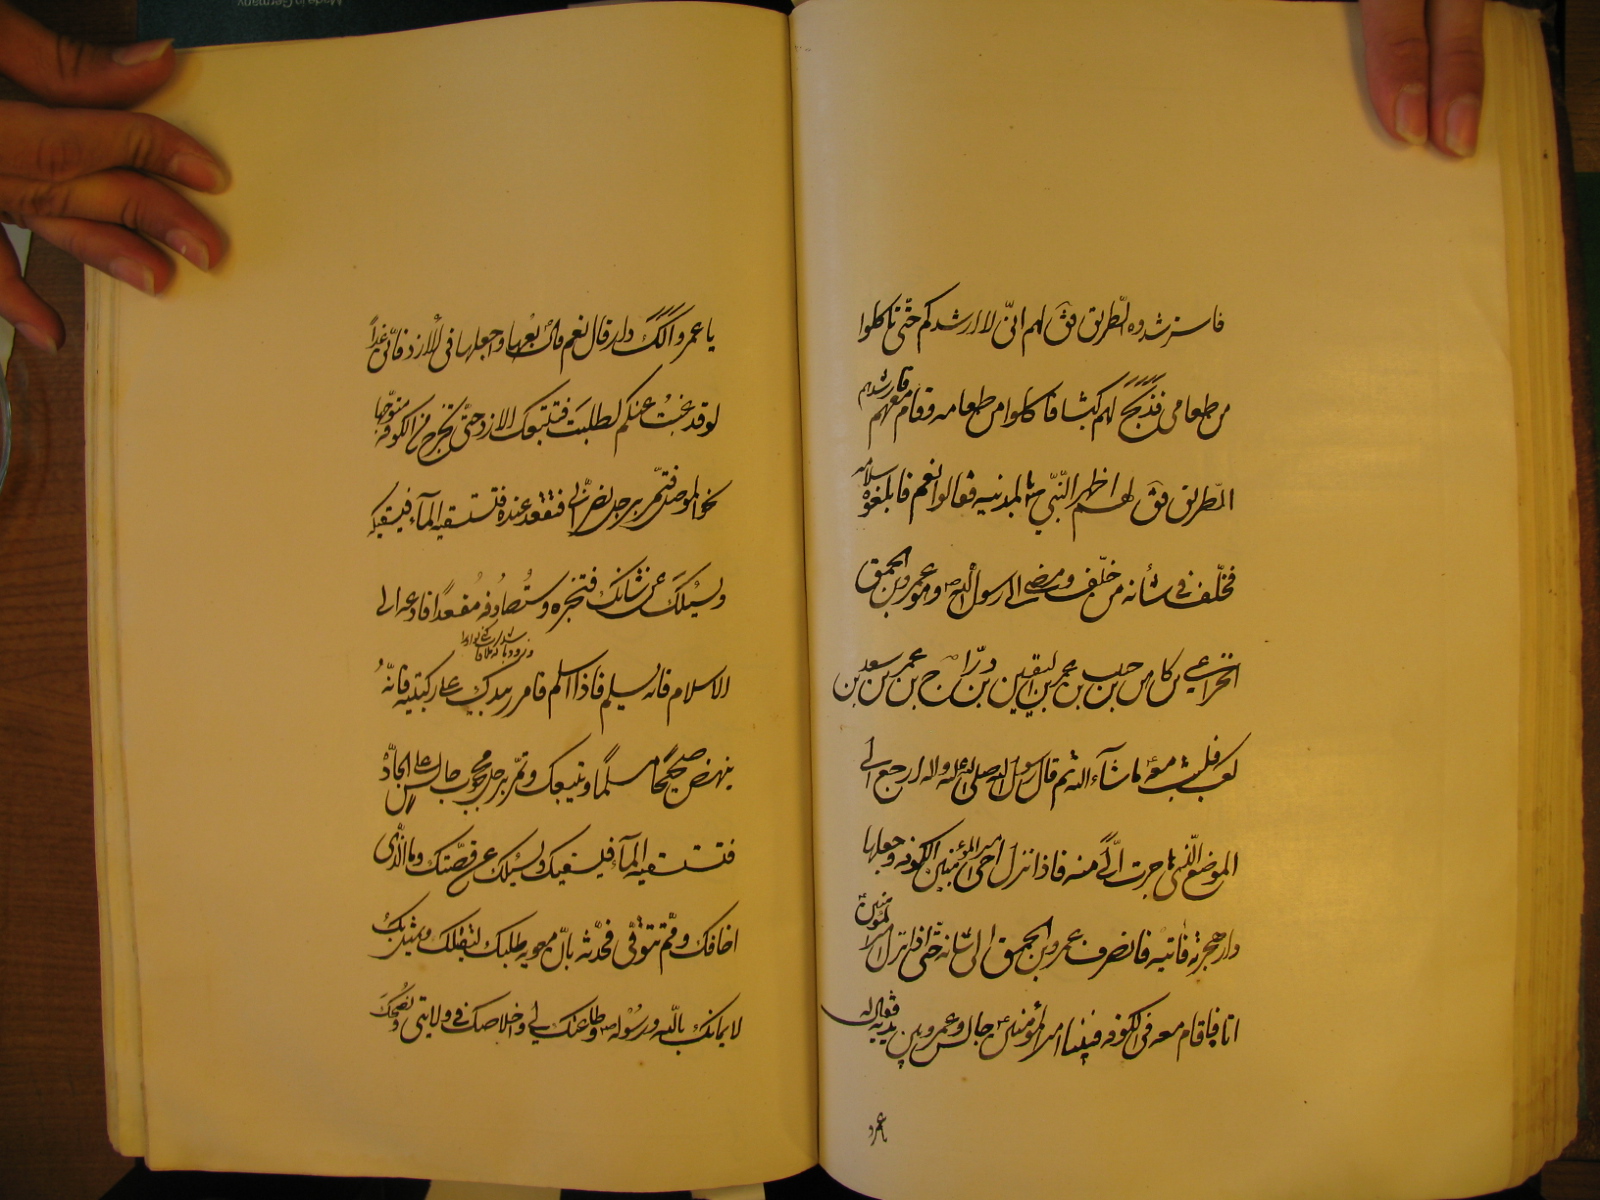 فاسترشدوه الطّريق فقَ لهم انّى لا ارشدكم حتّى تاكلوا
من طعامى فذبح لهم كبشا فاكلوا من طعامه وقام معهم فارشدهم
الطّريق فقَ لهم اظهر النّبى ص بالمدنيه فقالوا نعم فابلغوه سلامه
فخلّف فى شأنه من خلّف ومضى الى رسول اللّه ص وهو عمروبن الحمق
الخزاعى بن كاهن بن حبيب بن عمر بن القين بن درّاح بن عمر بن سعد بن
كعب فلبث معه ما شآء اللّه ثم قال رسول اللّه صلى اللّه عليه واله ارجع الى
الموضع الّذى هاجرت الىّ منه فاذا نزل اخى امير المؤمنين الكوفه وجعلها
دار هجرته فاتيه فانصرف عمروبن الحمق الى شانه حتّى اذا نزل امير المؤمنين ع
اتا فاقام معه فى الكوفه فبينا امير المؤمنين ع جالس وعمرو بين يديه فقال له
يا عمرو
يا عمرو الك دار قال نعم قال بعها واجعلها فى الازد فانّى غداً
لو قد غبتُ عنكم لطلبتَ فتتبعك الازد حتّى تخرج من الكوفه متوجّها
نحو الموصل فتمّر برجل نصرانّى فتقعد عنده فتستسقيه المآء فيسقيكه
ويسئلكَ عن شانك فتخبره وستُصادِفه مُقعدًا فادعه الى
الاسلام فانه يسلم فاذا اسلم فامرر بيدك على ركبتيه فانّهُ
ينهض صحيحًا مسلمًا ويتبعك وتمّر برجل محجوب جالس على الجادّه
فتستسقيه المآء فيسقيك ويسئلك عن قصّتك وما الّذى
اخافك وممّ تتوقّى فحدّثه بانّ معويه طلبك ليقتلك ويمثّل بكَ
لايمانك باللّه ورسُوله ص وطاعتك لى واخلاصك فى ولايتى ونصُحك